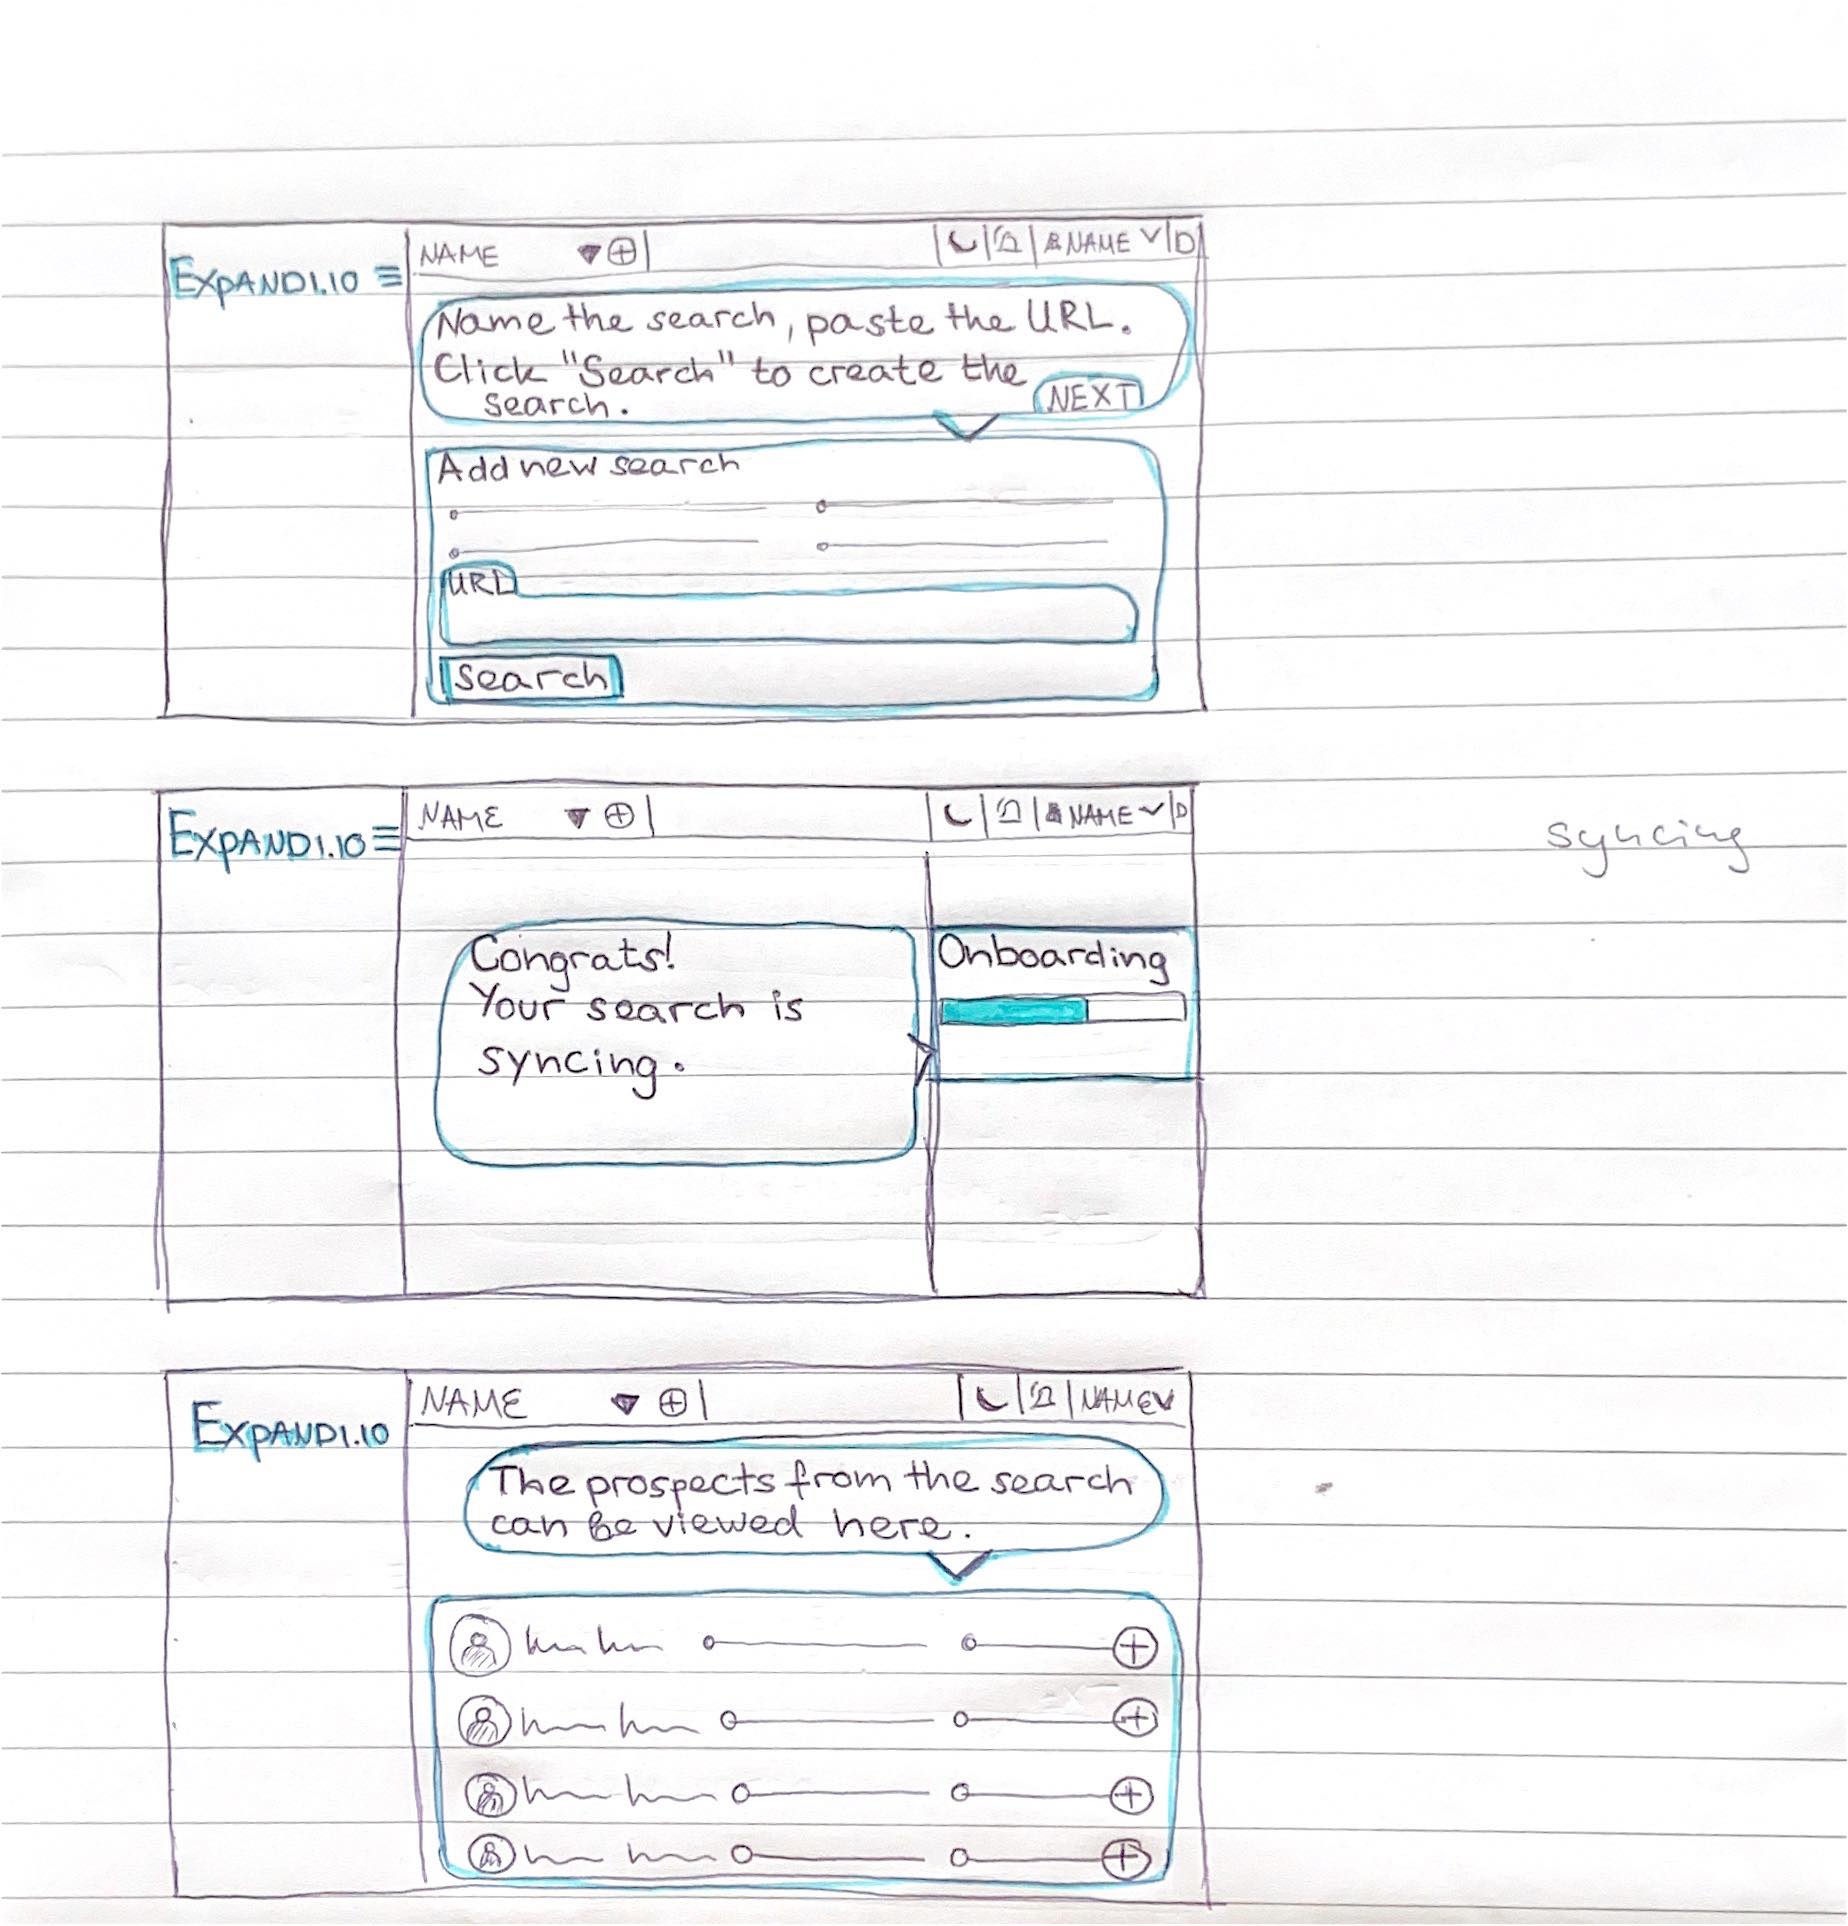 EXPANDI.IO
NAME
NAME
D
Name the search, paste the URL.
Click "Search" to create the
search.
NEXT
Add new search
URL
Search
EXPANDI.IO
NAME
NAME
D
syncing
Congrats!
Your search is
syncing.
Onboarding
EXPANDI.IO
NAME
NAME
The prospects from the search
can be viewed here.